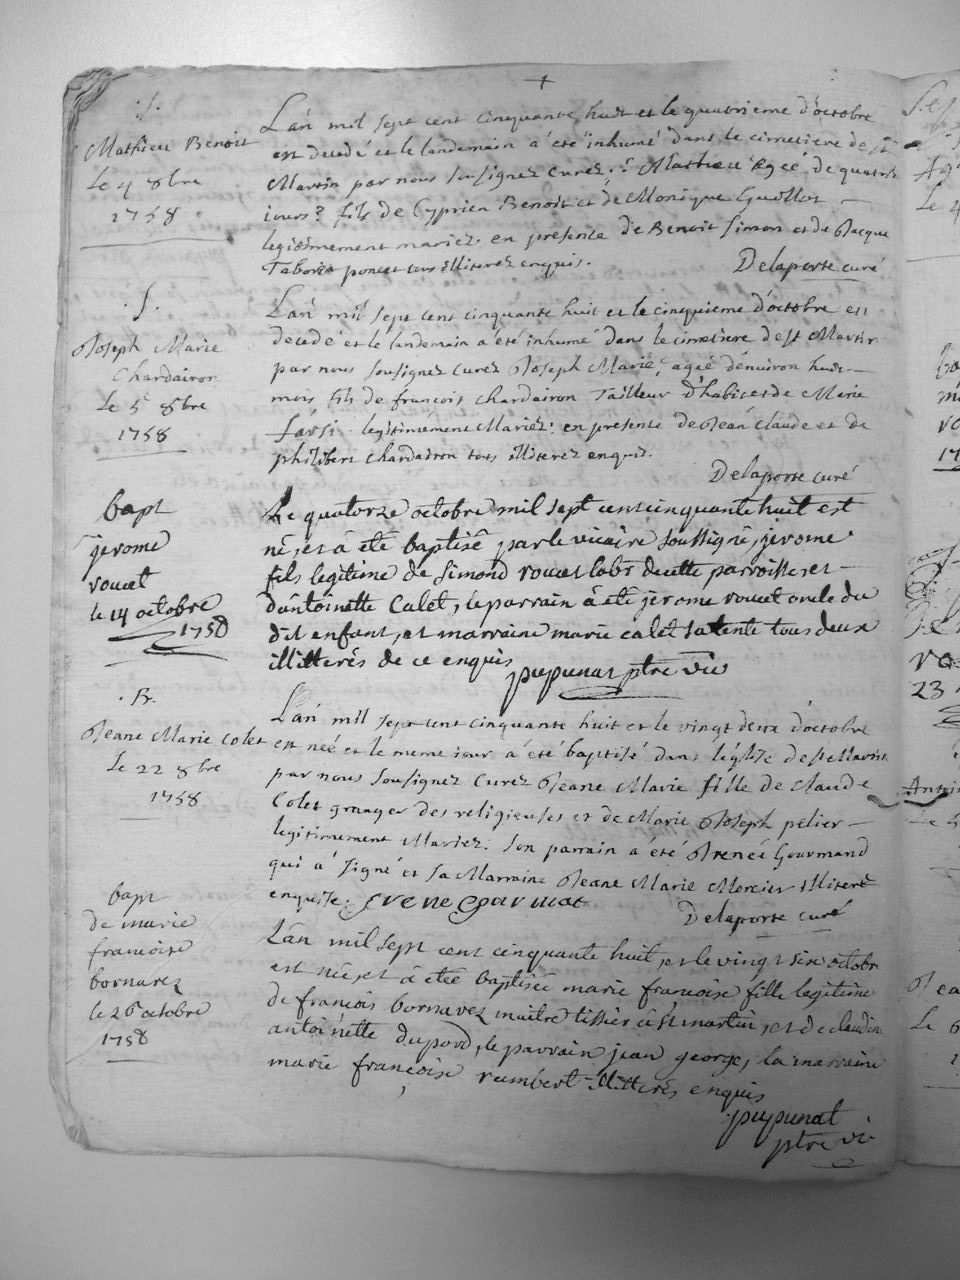 +
.S.
Mathieu Benoit
Le 4 8bre
1758
L'an mil sept cent cinquante huit et le quatrieme d'octobre
est decedé et le landemain a été inhumé dans le cimetiere de st
Martin par nous sousignez curez Mathieu agé de quatre
jours fils de Cyprien Benoit et de Monique Guillot
legitimement mariez. en presence de Benoit Simon et de Jacque
Taborin poncet tous illiterez enquis.
Delaporte curé
.S.
Joseph Marie
Chardairon
Le 5 8bre
1758
L'an mil sept cent cinquante huit et le cinquieme d'octobre est
decedé et le landemain a été inhumé dans le cimetiere de st Martin
par nous sousignez curez Joseph Marie, agié d'environ huit
mois fils de francois chardairon Tailleur d'habits et de Marie
farsi legitimement Mariez: en presence de Jean Claude et de
philibert chardadron tous illiterez enquis.
Delaporte curé
bapt
jerome
vouët
le 14 octobre
1758
Le quatorze octobre mil sept cent cinquante huit est
né, et à été baptisé par le vicaire soussigné, jerome
fils legitime de Simond vouet labr de cette parroisse, et
d'antoinette Calet, le parrain à été jerome vouet oncle du
dit enfant, et marraine marie calet sa tente tous deux
illitterés de ce enquis
pupunat ptre vic
.B.
Jeane Marie Colet
Le 22 8bre
1758
L'an mil sept cent cinquante huit et le vingt deux d'octobre
est néé et le meme jour a été baptisé dans leglise de st Martin
par nous sousignez curez Jeane Marie fille de claude
Colet granger des religieuses et de Marie Joseph pelier
legitimement Mariez. son parrain a été Irenée Gourmand
qui a signé et sa Marraine Jeane Marie Mercier illiteré
enquise.
Delaporte curé
bapt
de marie
francoise
bornarez
le 26 octobre
1758
L'an mil sept cent cinquante huit, et le vingt six octobre
est née, et à etée baptisée marie francoise fille legitime
de francois bornarez maitre tissier à st martin, et de claudine
antoinette dupord, le parrain jean george, la marraine
marie francoise rumbert illitterés enquis
pupunat
ptre vic